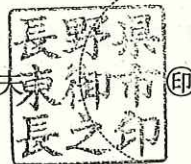 長野県
東御市
長之印
㊞